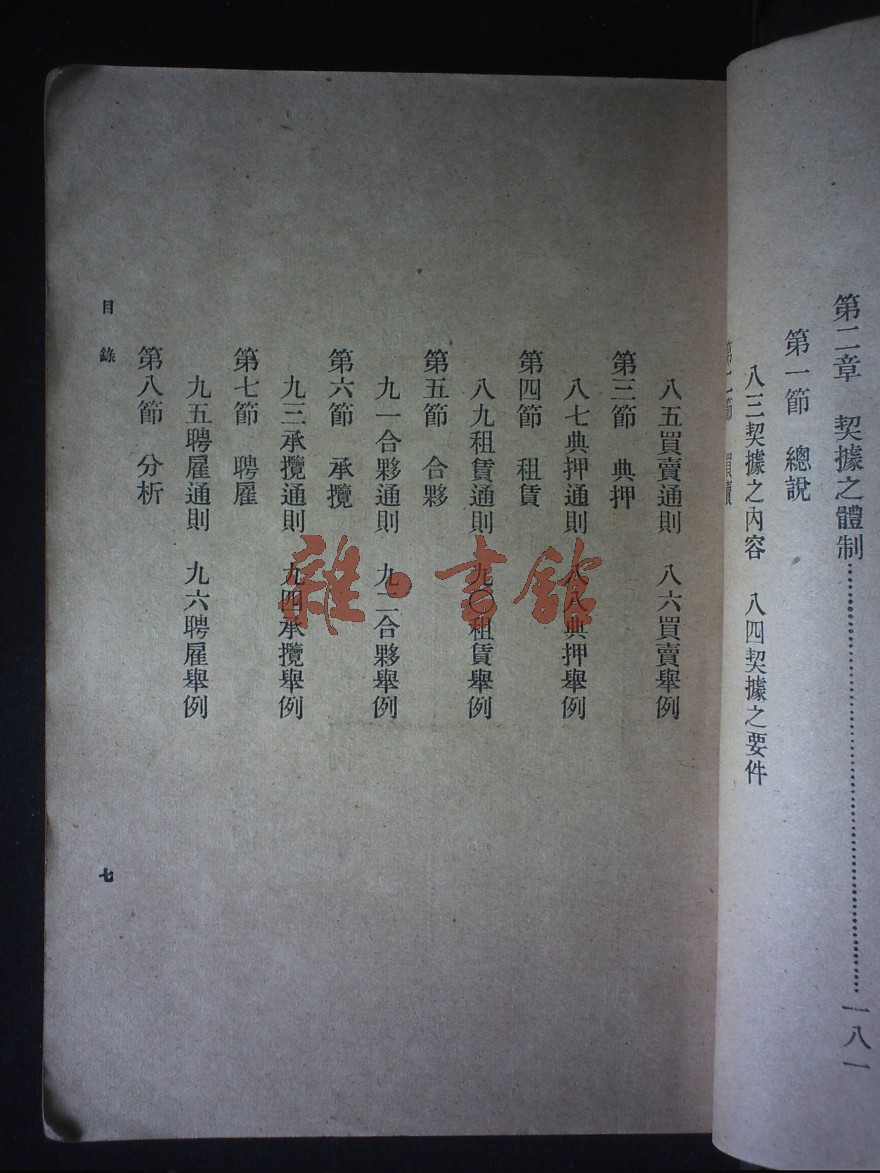 第二章　契據之體制……一八一
第一節　總說
八三契據之內容　八四契據之要件
第二節　買賣
八五買賣通則　八六買賣舉例
第三節　典押
八七典押通則　八八典押舉例
第四節　租賃
八九租賃通則　九〇租賃舉例
第五節　合夥
九一合夥通則　九二合夥舉例
第六節　承攬
九三承攬通則　九四承攬舉例
第七節　聘雇
九五聘雇通則　九六聘雇舉例
第八節　分析
目錄
七
雜·書館